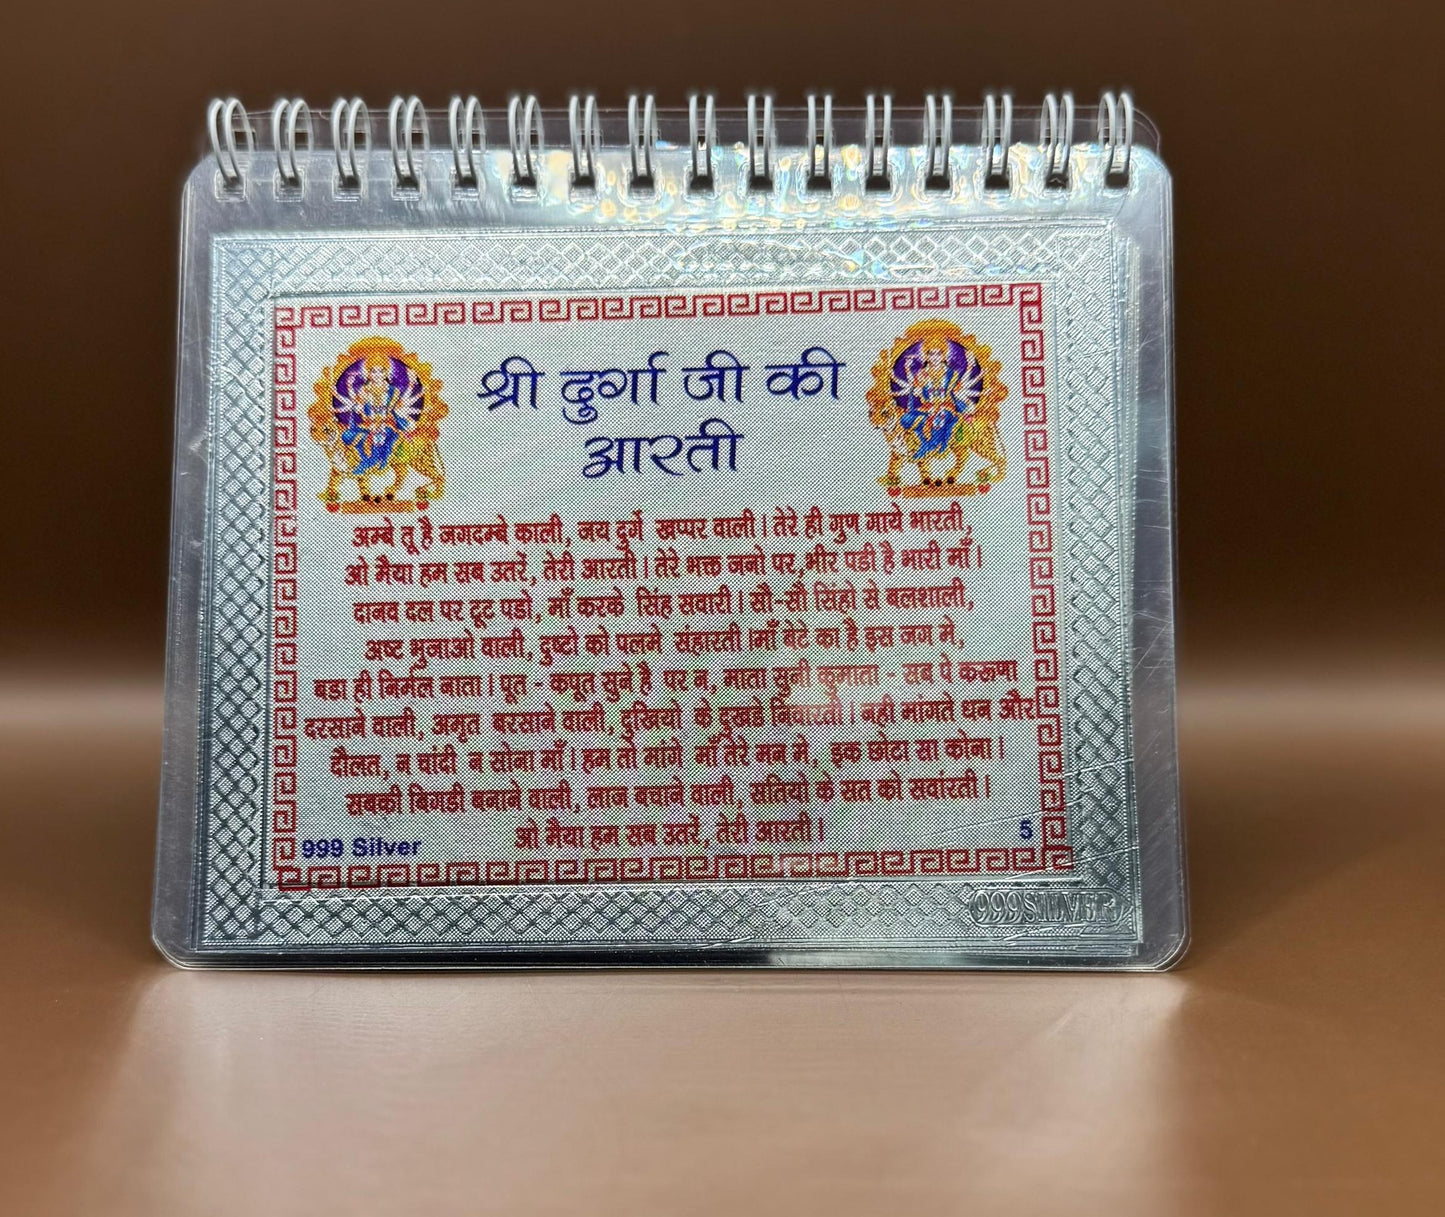 श्री दुर्गा जी की
आरती
अम्बे तू है जगदम्बे काली, जय दुर्गे खप्पर वाली। तेरे ही गुण गाये भारती,
ओ मैया हम सब उतरें, तेरी आरती। तेरे भक्त जनो पर,भीर पडी है भारी माँ।
दानव दल पर टूट पडो, माँ करके सिंह सवारी। सौ-सौ सिंहो से बलशाली,
अष्ट भुजाओ वाली, दुष्टो को पलमे संहारती।माँ बेटे का है इस जग मे,
बडा ही निर्मल नाता। पूत - कपूत सुने है पर न, माता सुनी कुमाता - सब पे करूणा
दरसाने वाली, अमृत बरसाने वाली, दुखियो के दुखडे निवारती। नही मांगते धन और
दौलत, न चांदी न सोना माँ। हम तो मांगे माँ तेरे मन मे, इक छोटा सा कोना।
सबकी बिगडी बनाने वाली, लाज बचाने वाली, सतियो के सत को सवांरती।
ओ मैया हम सब उतरें, तेरी आरती।
999 Silver
5
999SILVER